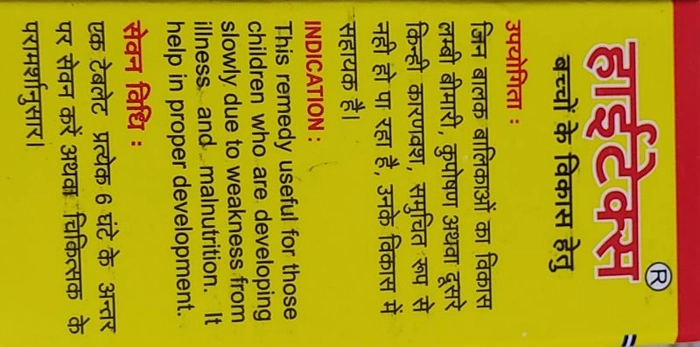 हाईटेक्स®
बच्चों के विकास हेतु
उपयोगिता :
जिन बालक बालिकाओं का विकास
लम्बी बीमारी, कुपोषण अथवा दूसरे
किन्ही कारणवश, समुचित रूप से
नही हो पा रहा है, उनके विकास में
सहायक है।
INDICATION :
This remedy useful for those
children who are developing
slowly due to weakness from
illness and malnutrition. It
help in proper development.
सेवन विधि :
एक टेबलेट प्रत्येक 6 घंटे के अन्तर
पर सेवन करें अथवा चिकित्सक के
परामर्शानुसार।